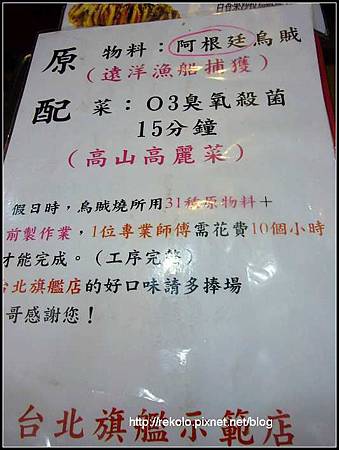 原 物料：阿根廷烏賊
（遠洋漁船捕獲）
配 菜：O3臭氧殺菌
15分鐘
（高山高麗菜）
假日時，烏賊燒所用31種原物料＋
前製作業，1位專業師傅需花費10個小時
才能完成。（工序完整）
台北旗艦店的好口味請多捧場
哥感謝您！
台北旗艦示範店
http://rekolo.pixnet.net/blog